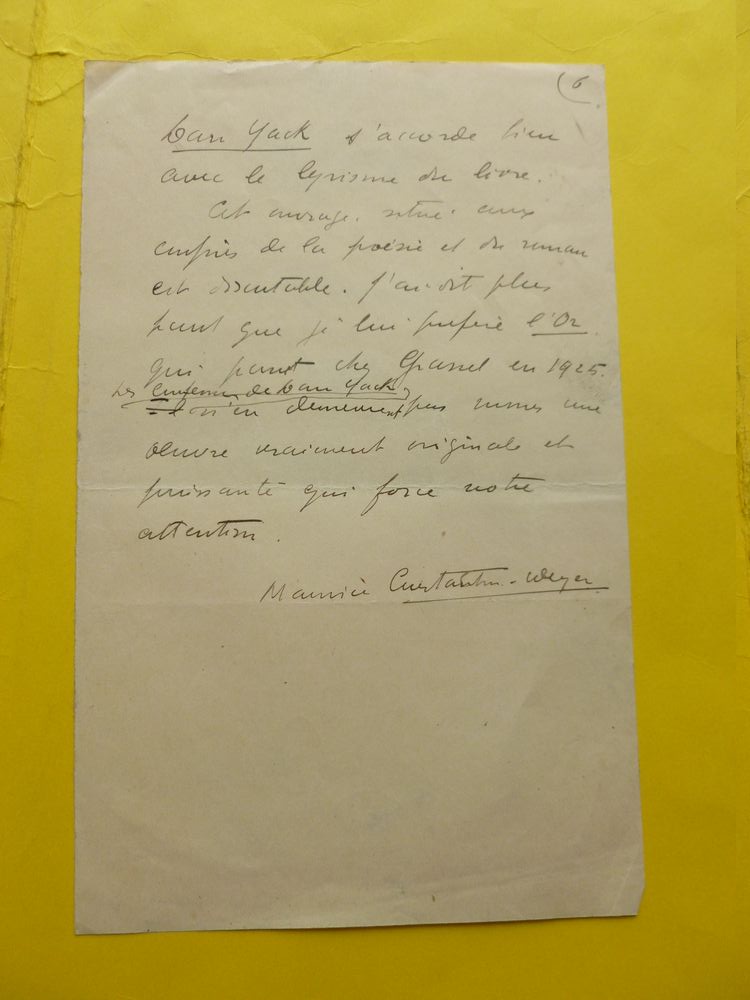 6
Dan Yack s'accorde bien
avec le lyrisme du livre.
Cet ouvrage, situé aux
confins de la poésie et du roman
est discutable. J'ai dit plus
haut que je lui préfère l'Or
qui parut chez Grasset en 1925.
Les Confessions de Dan Yack
n'en demeurent pas moins une
œuvre vraiment originale et
puissante qui force notre
attention.
Maurice Constantin-Weyer